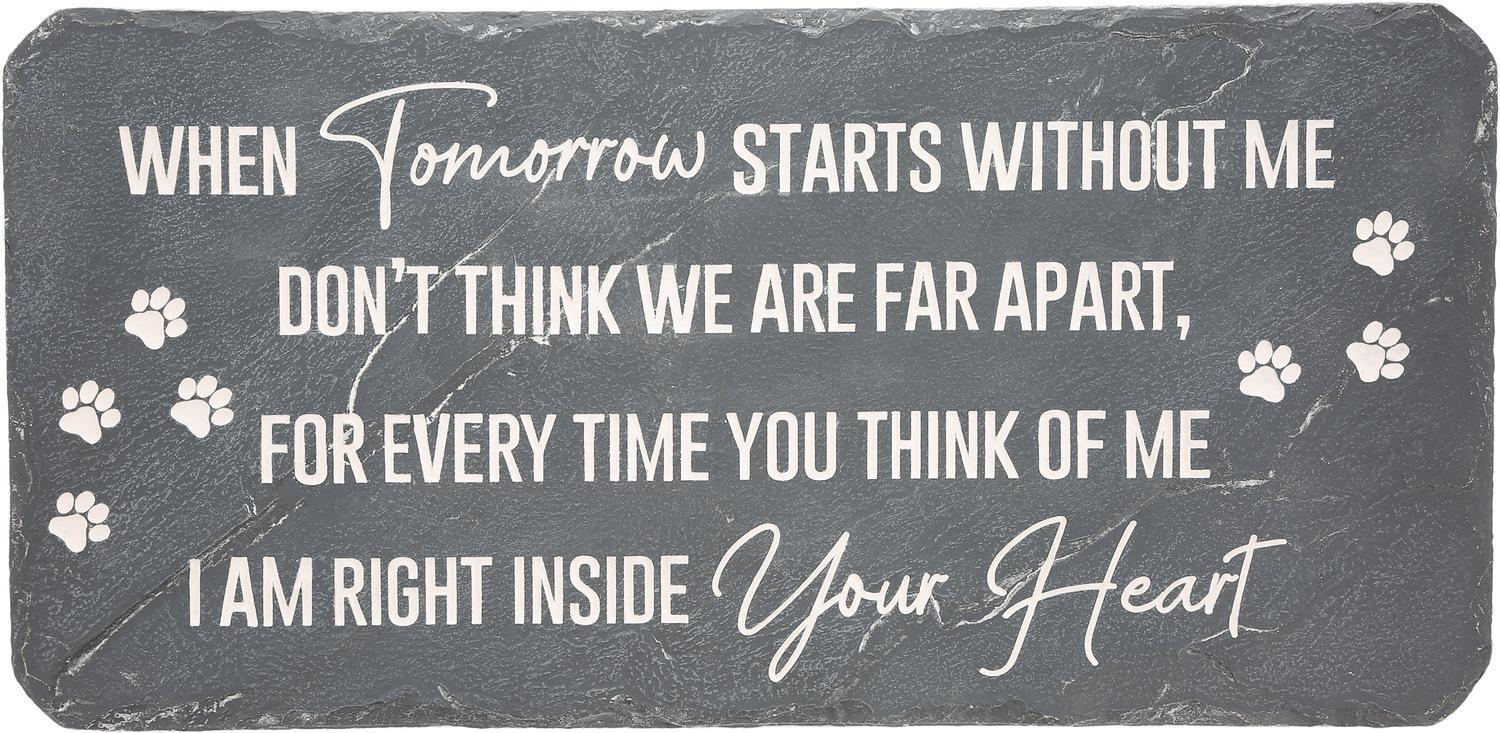 WHEN Tomorrow STARTS WITHOUT ME
DON'T THINK WE ARE FAR APART,
FOR EVERY TIME YOU THINK OF ME
I AM RIGHT INSIDE Your Heart